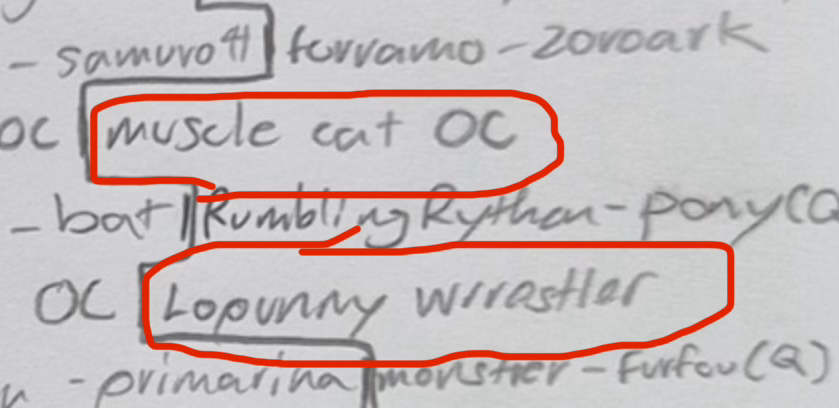 - samuro41 | furvamo - zoroark
OC | muscle cat OC
- bat || Rumbling Rython - pony(Q
OC | Lopunny wrrastler
- primarina | monstrer - furfou(Q)